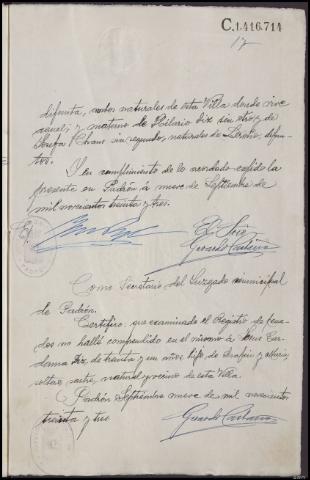 C.1.416.714
17
difunta, ambos naturales de esta Villa donde vive
y materno de Hilario Diz sin otro, y de
Josefa Chans sin segundo, naturales de difun-
tos.
Y en cumplimiento de lo acordado expido la
presente en Padrón a nueve de Septiembre de
mil novecientos treinta y tres.
El
Gerardo
Como Secretario del Juzgado municipal
de Padrón.
Certifico: que examinado el Registro de
dos no halló comprendido en el mismo a
Diz de treinta y un años hijo de Serafín y
soltero, sastre, natural y vecino de esta Villa.
Padrón Septiembre nueve de mil novecientos
treinta y tres
Gerardo